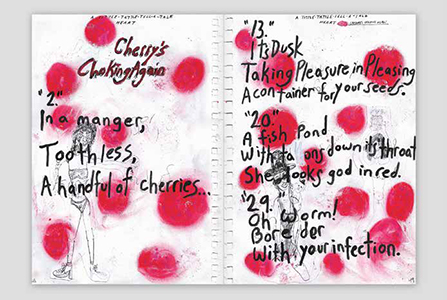 A TITTLE-TATTLE-TELL-A-TALE
HEART
Cherry's
Choking Again
"2."
In a manger,
Toothless,
A handful of cherries...
A TITTLE-TATTLE-TELL-A-TALE
HEART
"13."
It's Dusk
Taking Pleasure in Pleasing
A container for your seeds.
"20."
A fish Pond
With down its throat
She looks god in red.
"29.
Oh worm!
Bore der
With your infection.